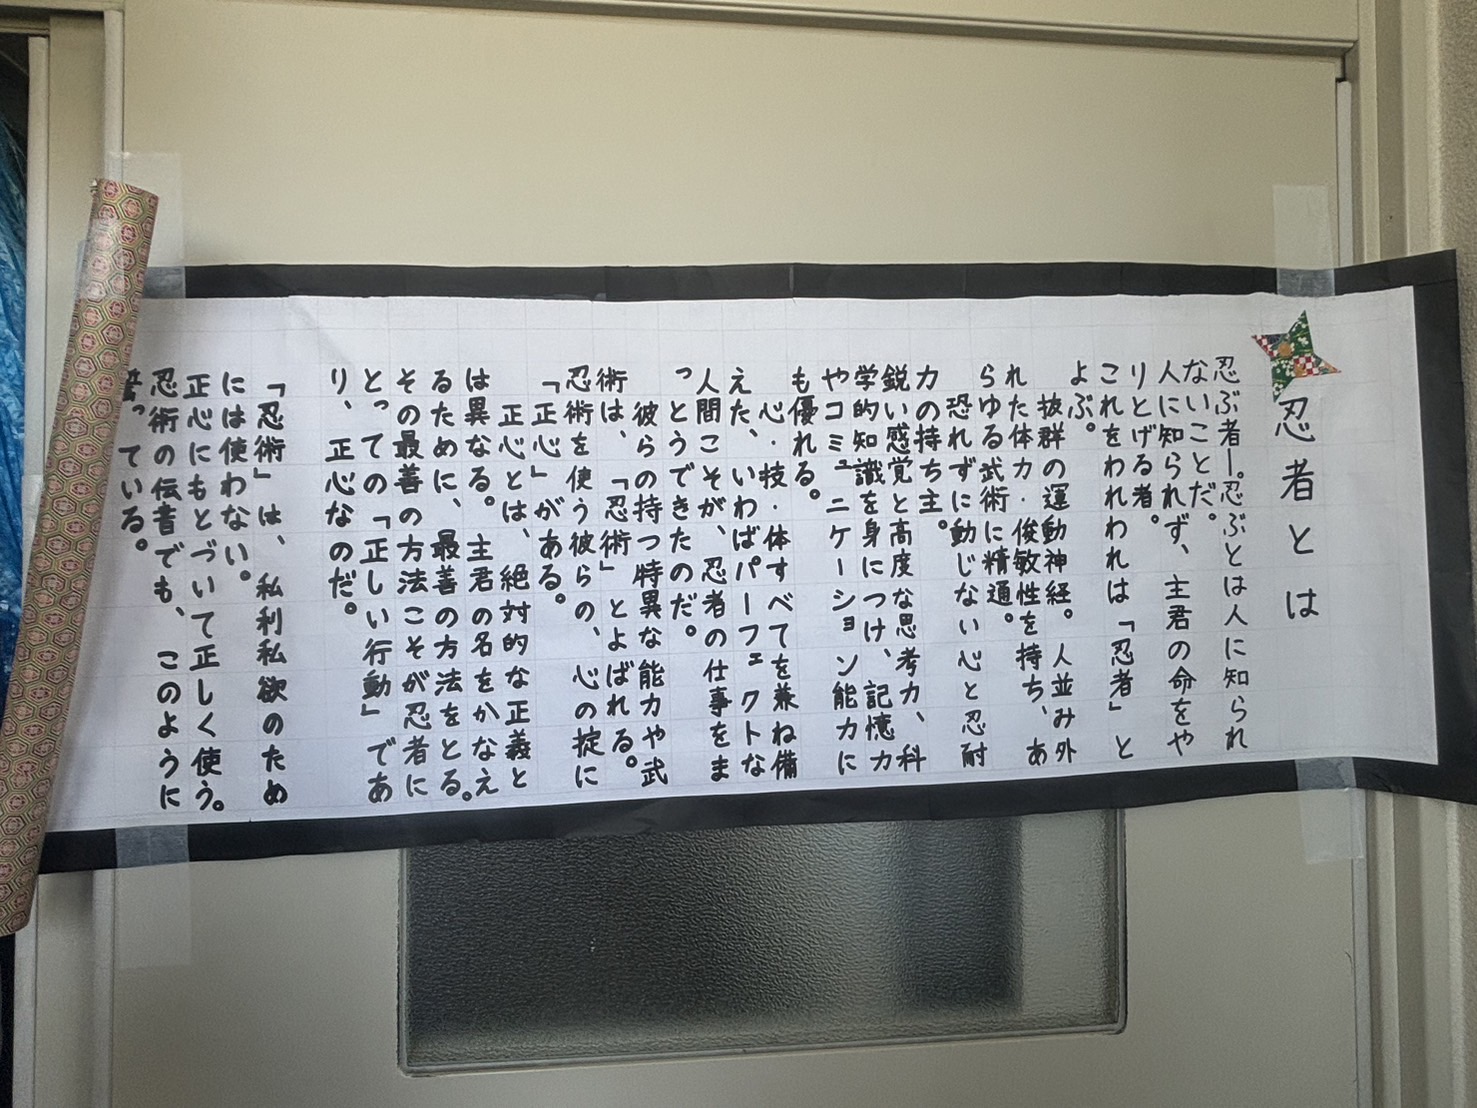 忍者とは
忍ぶ者ー。忍ぶとは人に知られ
ないことだ。
人に知られず、主君の命をや
りとげる者。
これをわれわれは「忍者」と
よぶ。
抜群の運動神経。人並み外
れた体力・俊敏性を持ち、あ
らゆる武術に精通。
恐れずに動じない心と忍耐
力の持ち主。
鋭い感覚と高度な思考力、科
学的知識を身につけ、記憶力
やコミュニケーション能力に
も優れる。
心・技・体すべてを兼ね備
えた、いわばパーフェクトな
人間こそが、忍者の仕事をま
っとうできたのだ。
彼らの持つ特異な能力や武
術は、「忍術」とよばれる。
忍術を使う彼らの、心の掟に
「正心」がある。
正心とは、絶対的な正義と
は異なる。主君の名をかなえ
るために、最善の方法をとる。
その最善の方法こそが忍者に
とっての「正しい行動」であ
り、正心なのだ。
「忍術」は、私利私欲のため
には使わない。
正心にもとづいて正しく使う。
忍術の伝書でも、このように
誓っている。